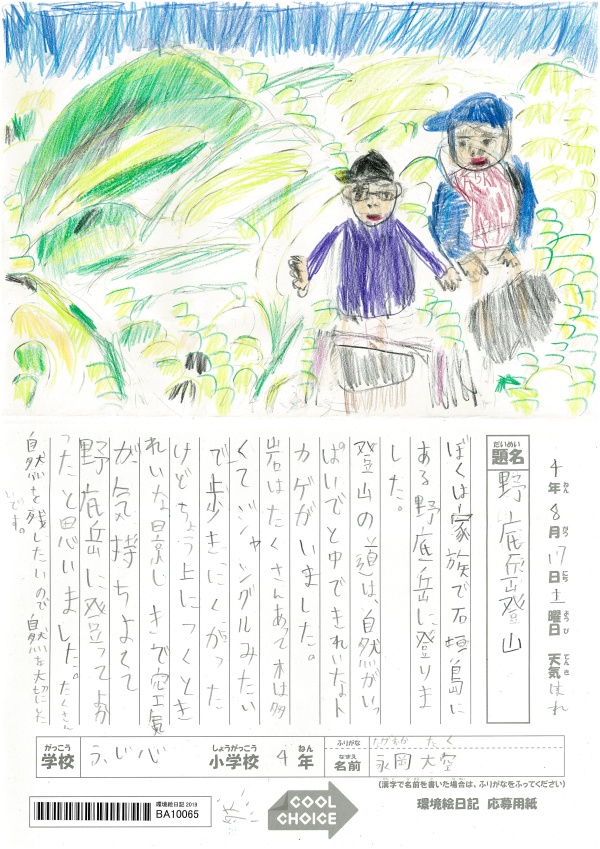 4年8月17日土曜日 天気はれ
ねん がつ にち ようび てんき
だいめい
題名
野底岳登山
ぼくは家族で石垣島に
ある野底岳に登りま
した。
登山の道は、自然がいっ
ぱいでと中できれいなト
カゲがいました。
岩はたくさんあって木は多
くてジャングルみたい
で歩きにくかった
けどちょう上につくとき
れいな景しきで空気
が気持ちよくて
野底岳に登ってよか
ったと思いました。たくさん
自然を残したいので自然を大切にした
いです。
がっこう
学校
しょうがっこう
小学校 4年
ねん
ふりがな
なまえ
名前
永岡大空
(漢字で名前を書いた場合は、ふりがなをふってください)
環境絵日記 2019
BA10065
COOL
CHOICE
環境絵日記 応募用紙